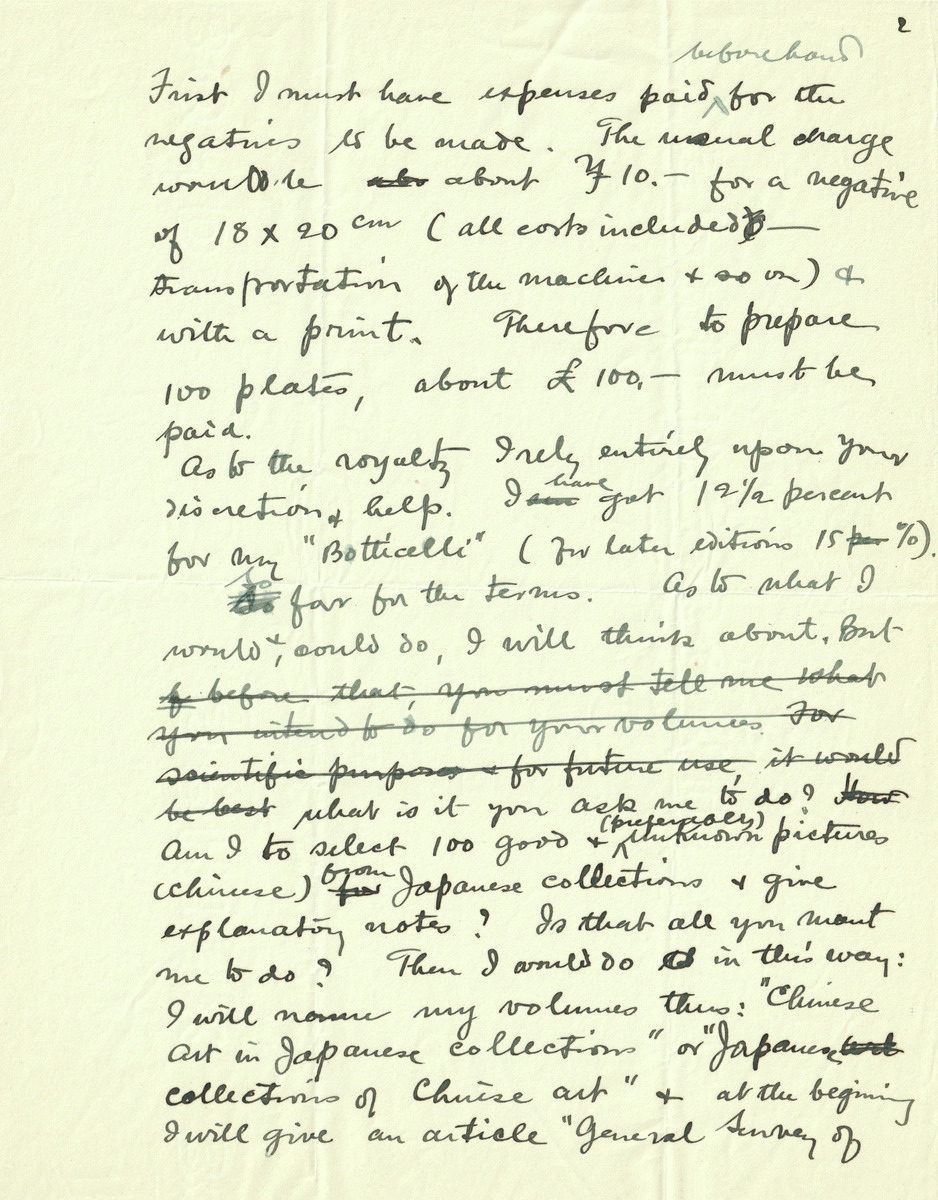 2
beforehand
First I must have expenses paid ^ for the
negatives to be made. The usual charge
would be abo about ¥ 10.— for a negative
of 18 x 20 cm (all costs included —
transportation of the machines & so on) &
with a print. Therefore to prepare
100 plates, about £ 100,— must be
paid.
As to the royalty I rely entirely upon your
discretion & help. I have got 12 1/2 percent
for my "Botticelli" (for later editions 15 per %).
So far for the terms. As to what I
would &, could do, I will think about. But
if before that, you must tell me what
you intend to do for your volumes. For
scientific purposes & for future use, it would
be best what is it you ask me to do? How
(preferably)
Am I to select 100 good & ^ unknown pictures
(Chinese) from for Japanese collections & give
explanatory notes? Is that all you want
me to do? Then I would do in this way:
I will name my volumes thus: "Chinese
Art in Japanese collections" or "Japanese art
collections of Chinese art" & at the begining
I will give an article "General Survey of